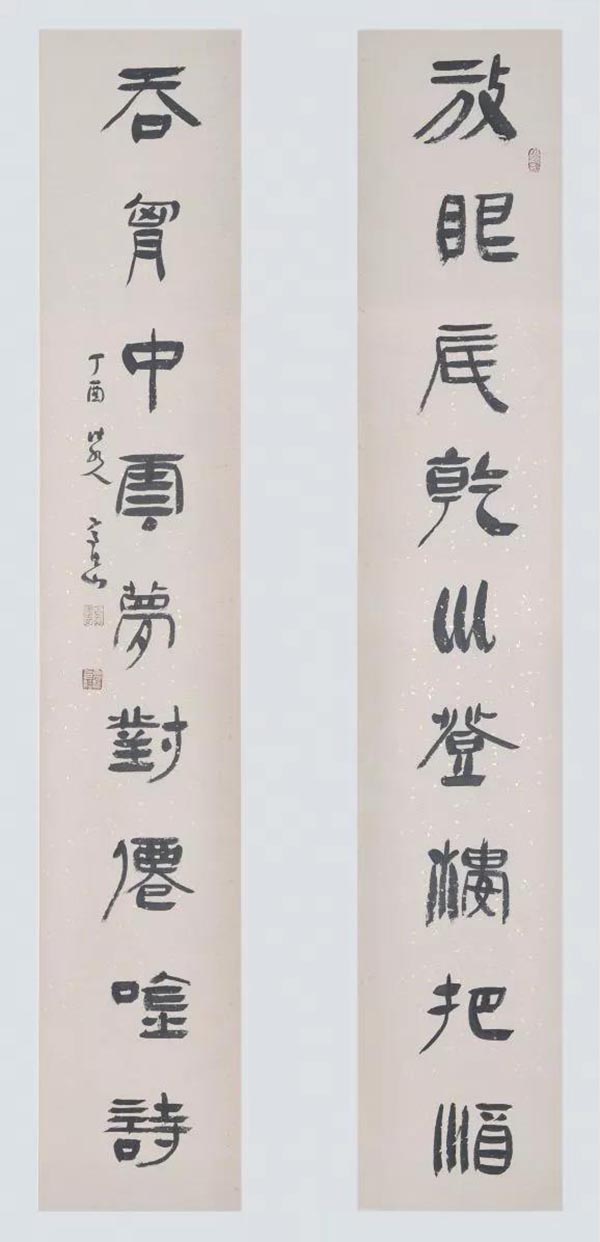 放眼底乾巛登樓把酒
吞胷中雲夢對僊唫詩
丁酉